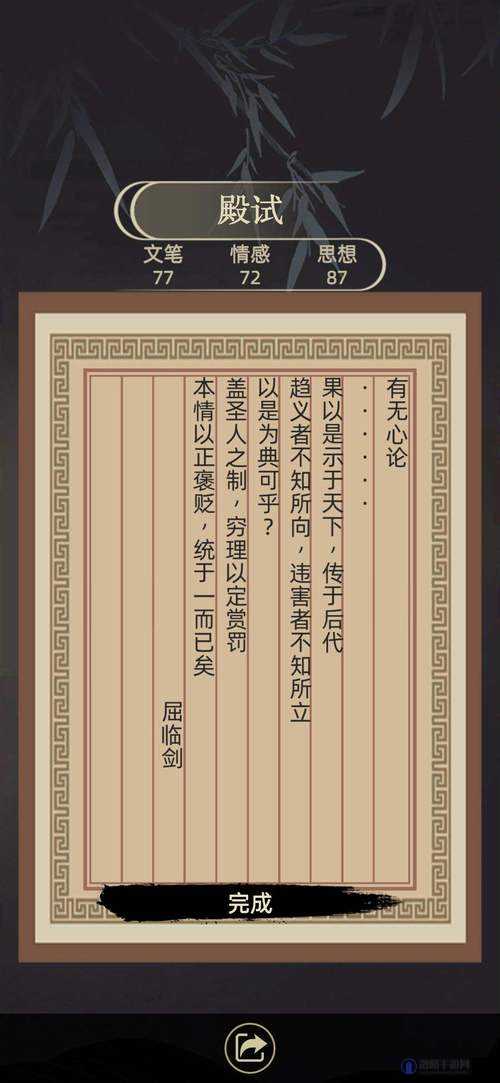 殿试
文笔 情感 思想
77 72 87
有无心论
······
果以是示于天下，传于后代
趋义者不知所向，违害者不知所立
以是为典可乎？
盖圣人之制，穷理以定赏罚
本情以正褒贬，统于一而已矣
屈临剑
完成